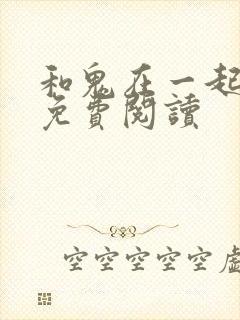 和鬼在一起
免費閱讀
空空空空空虛